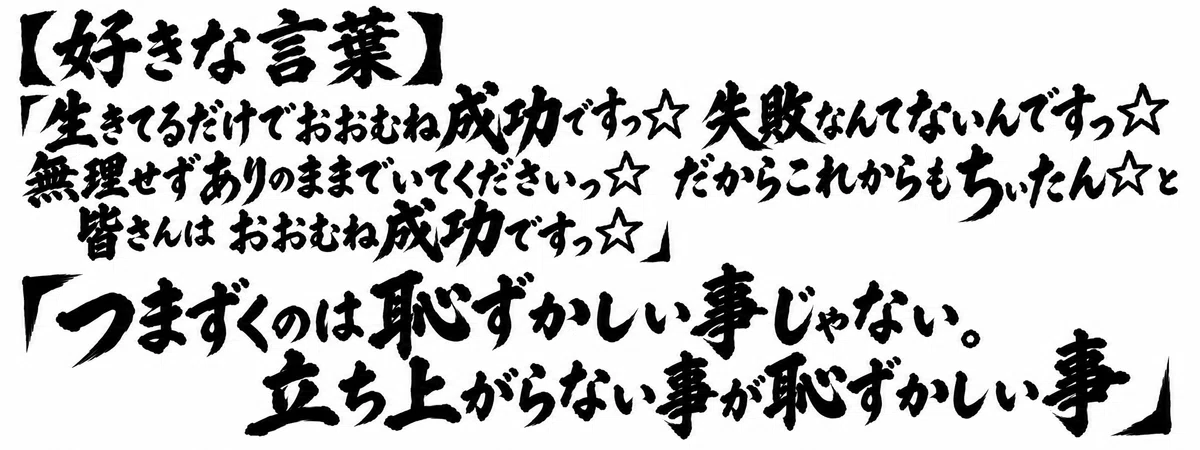 【好きな言葉】
「生きてるだけでおおむね成功ですっ☆ 失敗なんてないんですっ☆
無理せずありのままでいてくださいっ☆ だからこれからもちぃたん☆と
皆さんは おおむね成功ですっ☆」
「つまずくのは恥ずかしい事じゃない。
立ち上がらない事が恥ずかしい事」